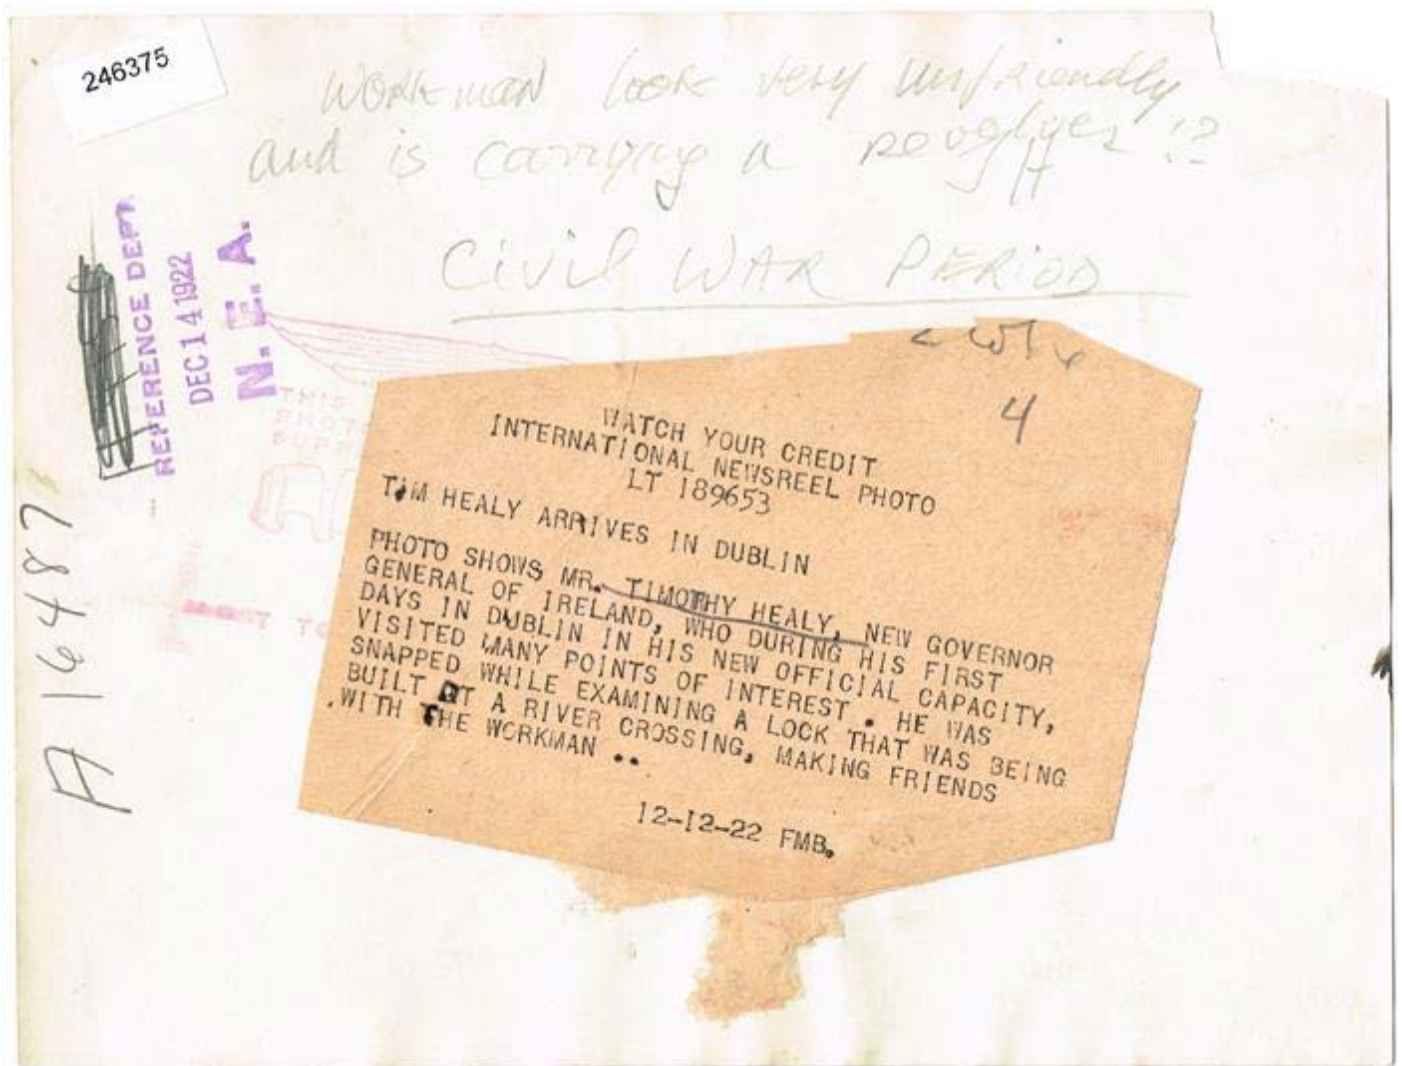 246375
WORKMAN look very unfriendly
and is carrying a
Civil WAR PERIOD
REFERENCE DEPT
DEC 14 1922
N. E. A.
THIS
PHOTO
SUPP
A 16487
4
WATCH YOUR CREDIT
INTERNATIONAL NEWSREEL PHOTO
LT 189653
TIM HEALY ARRIVES IN DUBLIN
PHOTO SHOWS MR. TIMOTHY HEALY, NEW GOVERNOR
GENERAL OF IRELAND, WHO DURING HIS FIRST
DAYS IN DUBLIN IN HIS NEW OFFICIAL CAPACITY,
VISITED MANY POINTS OF INTEREST. HE WAS
SNAPPED WHILE EXAMINING A LOCK THAT WAS BEING
BUILT AT A RIVER CROSSING, MAKING FRIENDS
WITH THE WORKMAN ..
12-12-22 FMB.